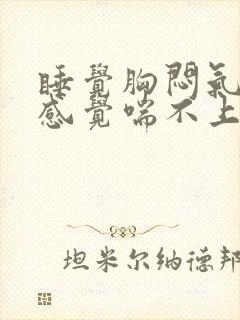 睡覺胸悶氣
感覺喘不上
坦米尔纳德邦